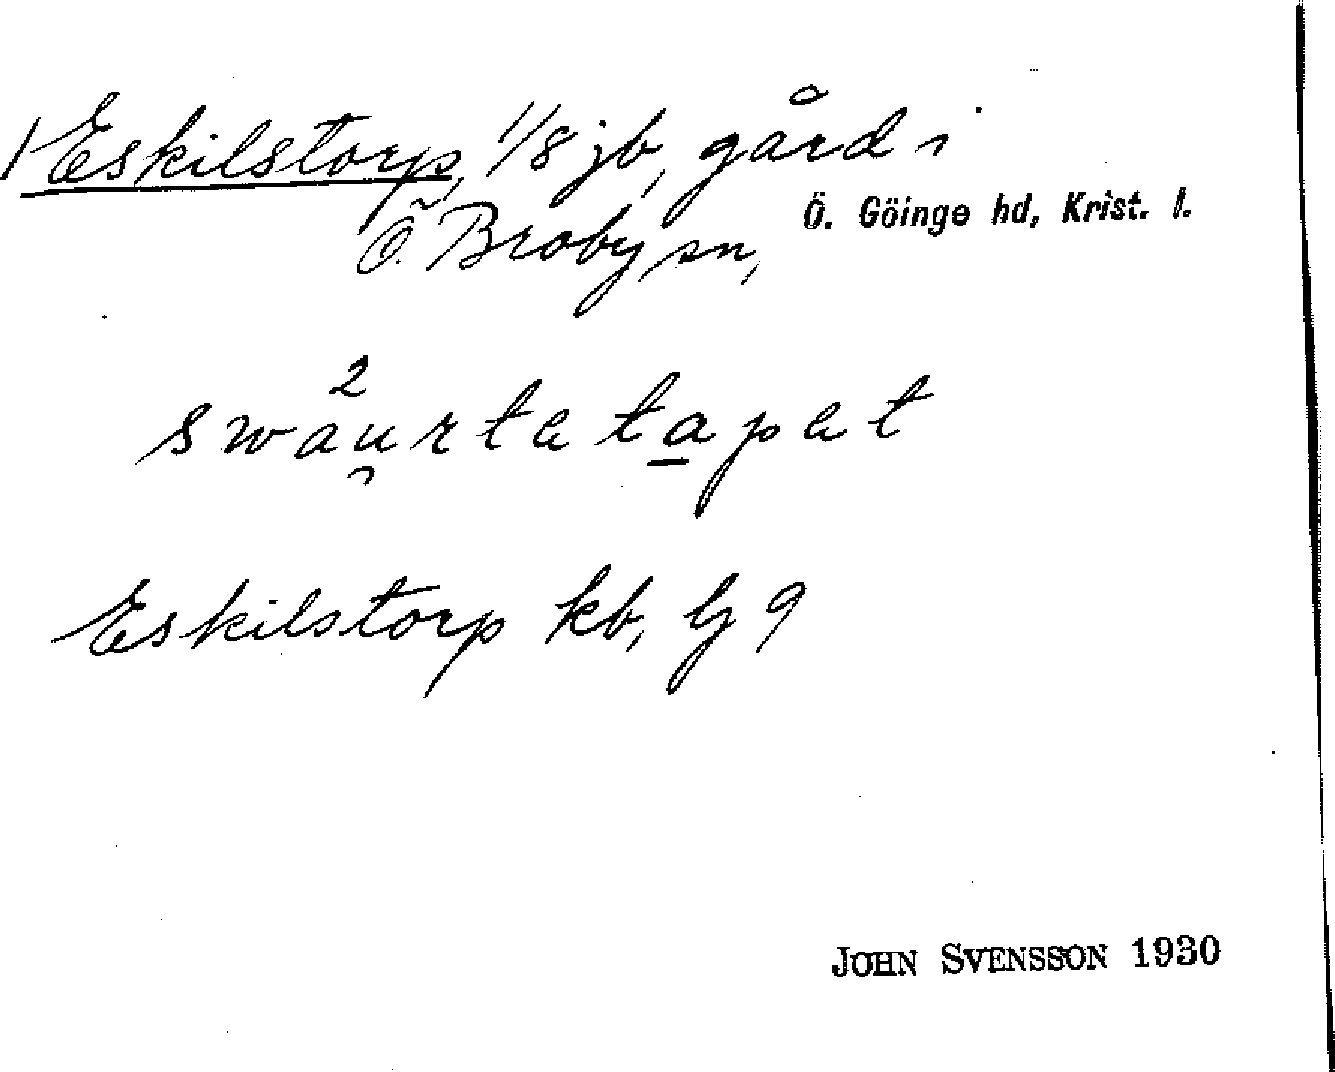 Eskilstorp, 1/8 jb, gård i
Ö. Broby sn, Ö. Göinge hd, Krist. l.
2
swäurtatapat
Eskilstorp kb, G 9
JOHN SVENSSON 1930